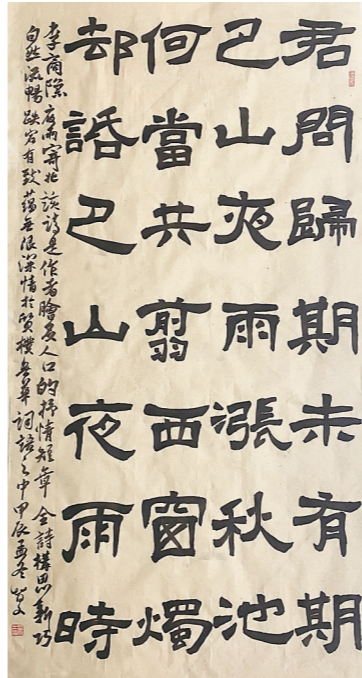 君問歸期未有期
巴山夜雨漲秋池
何當共翦西窗燭
却話巴山夜雨時
李商隱夜雨寄北該詩是作者膾炙人口的抒情短章 全詩構思新巧
自然流暢 跌宕有致 蘊無限深情於質樸無華詞語之中 甲辰孟冬